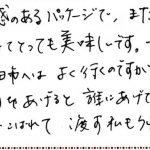 感のあるパッケージで、また
てとっても美味しいです。
田市へは よく行くのですが
けやあげると 誰にあげて
こばれて 渡す私もうし